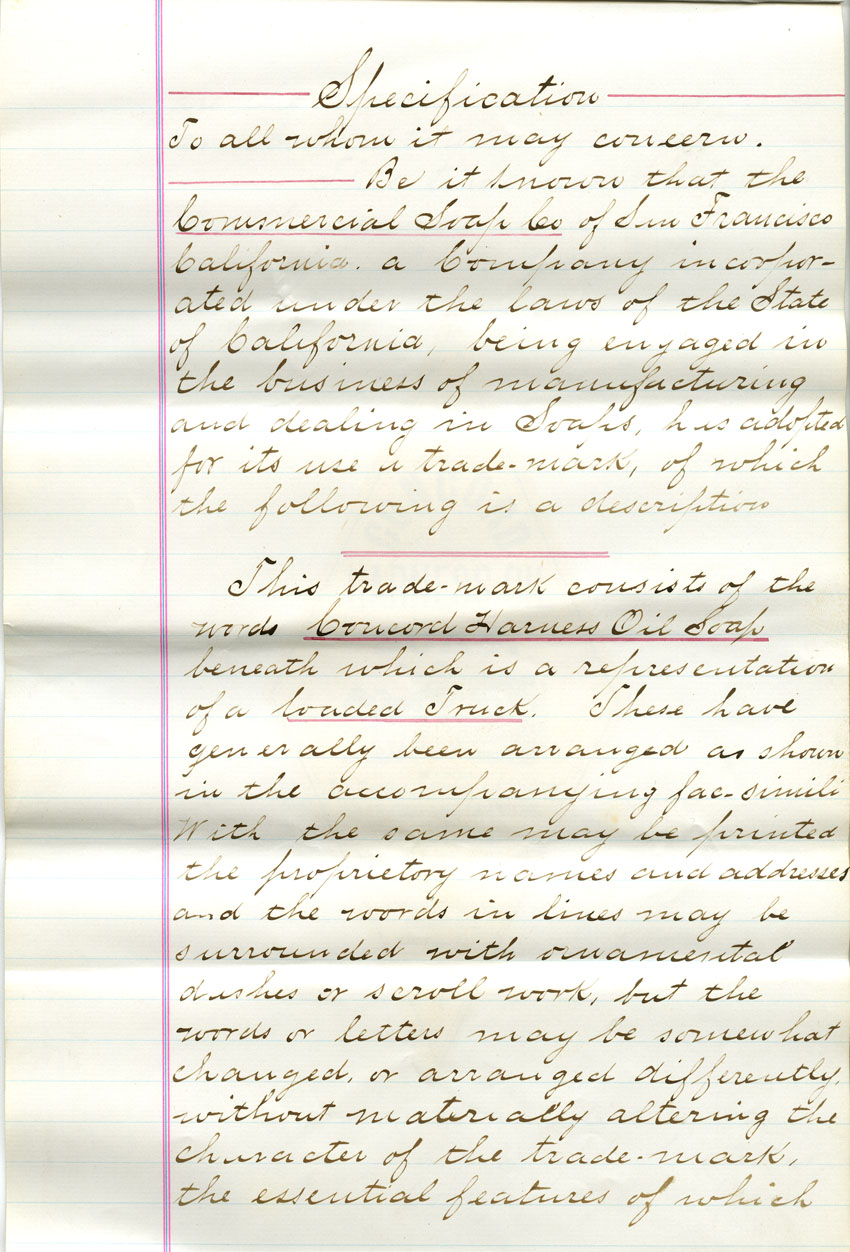 Specification
To all whom it may concern.
Be it known that the
Commercial Soap Co of San Francisco
California. a Company incorpor-
ated under the laws of the State
of California, being engaged in
the business of manufacturing
and dealing in Soaps, has adopted
for its use a trade-mark, of which
the following is a description
This trade-mark consists of the
words Concord Harness Oil Soap
beneath which is a representation
of a loaded Truck. These have
generally been arranged as shown
in the accompanying fac-simili
With the same may be printed
the proprietory names and addresses
and the words in lines may be
surrounded with ornamental
dashes or scroll work, but the
words or letters may be somewhat
changed, or arranged differently,
without materially altering the
character of the trade-mark,
the essential features of which